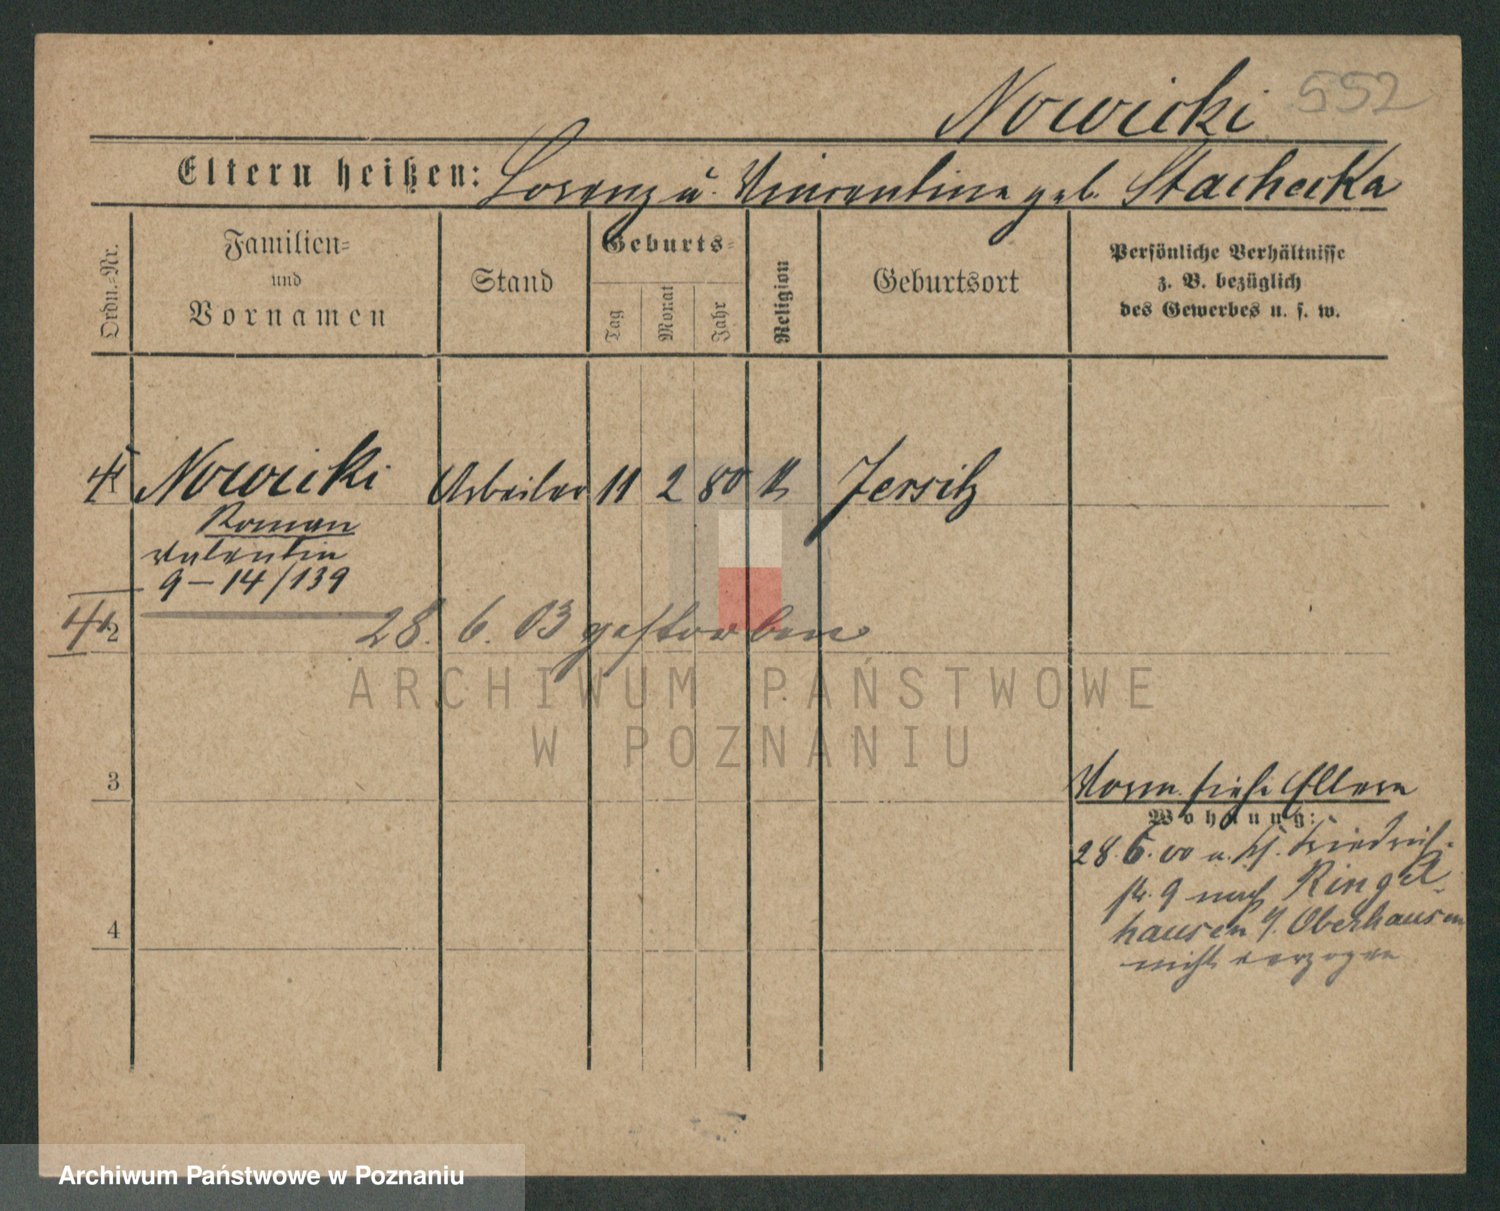 Nowicki 552
Eltern heißen: Lorenz u. Vincentine geb. Stachecka
Ordn.-Nr.
Familien-
und
Vornamen
Stand
Geburts-
Tag
Monat
Jahr
Religion
Geburtsort
Persönliche Verhältnisse
z. B. bezüglich
des Gewerbes u. s. w.
Nowicki Arbeiter 11 2 80 k Jersitz
Roman
Valentin
9-14/139
2 28. 6. 03 gestorben
3
Vorm. siehe Eltern
Wohnung:
28. 6. 00 u. Friedrich-
str. 9 nach Ringel-
4
hausen b/ Oberhausen
nicht verzogen
ARCHIWUM PAŃSTWOWE
W POZNANIU
Archiwum Państwowe w Poznaniu